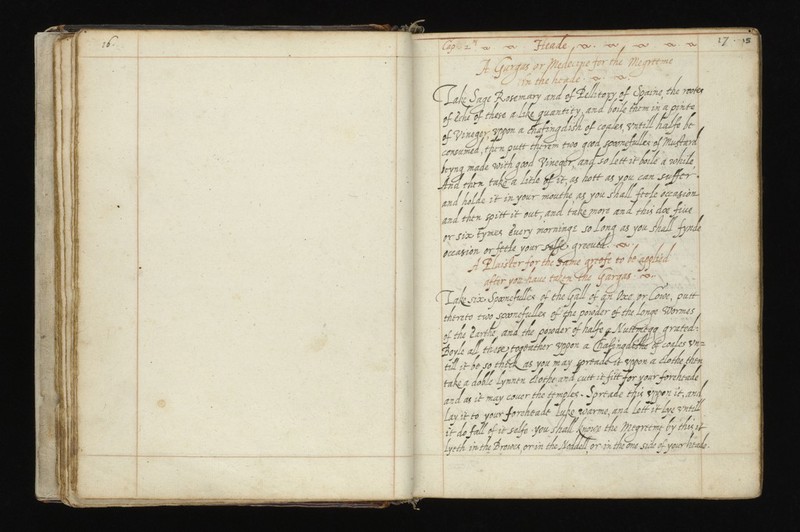 16.
Cap: 2 Heade, 17. 15
A Gargas or Medecine for the Megreme
in the heade.
Take Sage Rosemary and of Pellitory of Spaine the rootes
of eche of these a like quantity, and boile them in a pinte
of Vineger, vppon a Chafingdish of coales, vntill halfe be
consumed, then putt therein two good spoonefulles of Mustard
beyng made with good Vineger, and so lett it boile a while,
And then take a litle of it, as hott as you can suffer.
and holde it in your mouthe as you shall feele occasion
and then spitt it out, and take more and this doe fiue
or six tymes euery morninge so long as you shall fynde
occasion or feele your selfe greeued.
A Plaister for the same greefe to be applied
after you haue taken the Gargas.
Take six Spoonefulles of the Gall of an Oxe, or Cowe, putt
therato two spoonefulles of the powder of the longe Wormes
of the Earthe, and the powder of halfe a Nuttmegg grated:
Boyle all these together vppon a Chafingdishe of coales vn=
till it be so thick as you may spreade it vppon a clothe, then
take a doble lynnen clothe and cutt it fitt for your foreheade
and as it may couer the temples. Spreade this vppon it, and
lay it to your foreheade luke warme, and lett it lye vntill
it do fall of it selfe. you shall knowe the Megreme by this it
lyeth in the Browes, or in the Noddell, or in the one side of your heade.